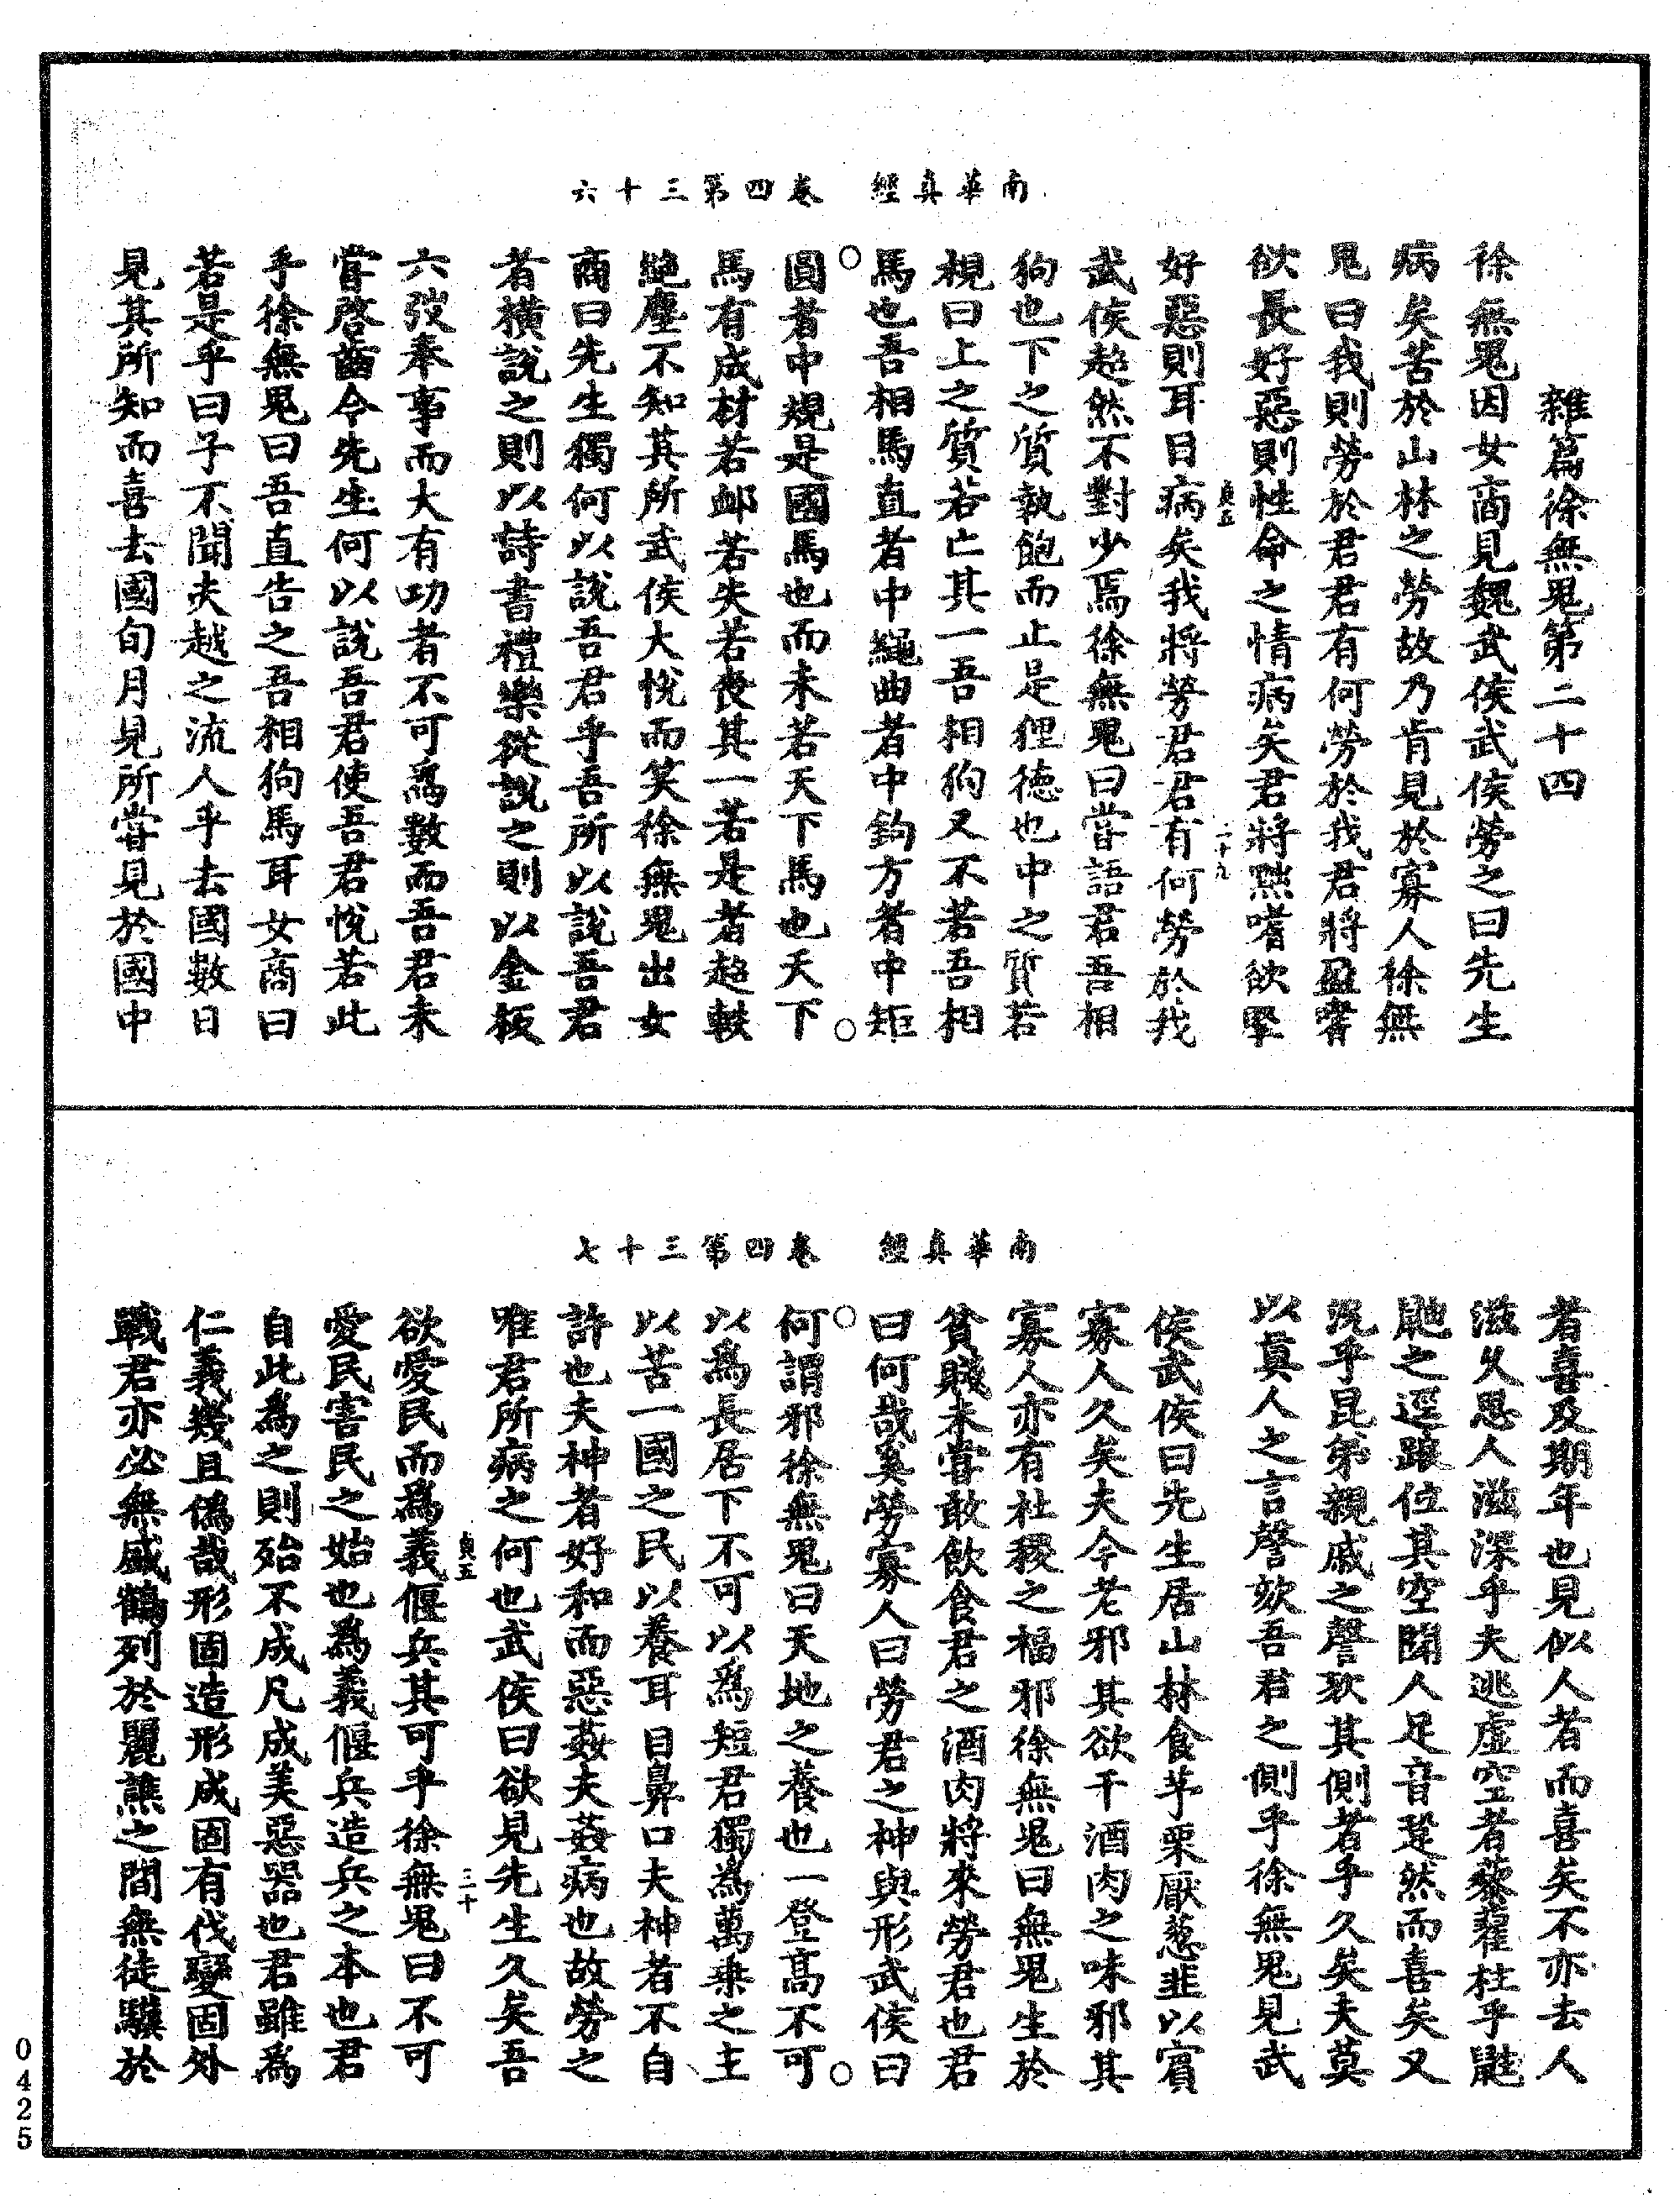 南華真經　卷四第三十六
雜篇徐無鬼第二十四
徐無鬼因女商見魏武侯武侯勞之曰先生
病矣苦於山林之勞故乃肯見於寡人徐無
鬼曰我則勞於君君有何勞於我君將盈嗜
欲長好惡則性命之情病矣君將黜嗜欲掔
貞五　二十九
好惡則耳目病矣我將勞君君有何勞於我
武侯超然不對少焉徐無鬼曰嘗語君吾相
狗也下之質執飽而止是狸德也中之質若
視曰上之質若亡其一吾相狗又不若吾相
馬也吾相馬直者中繩曲者中鉤方者中矩
圓者中規是國馬也而未若天下馬也天下
馬有成材若卹若失若喪其一若是者超軼
絕塵不知其所武侯大悅而笑徐無鬼出女
商曰先生獨何以說吾君乎吾所以說吾君
者橫說之則以詩書禮樂從說之則以金板
六弢奉事而大有功者不可為數而吾君未
嘗啓齒今先生何以說吾君使吾君悅若此
乎徐無鬼曰吾直告之吾相狗馬耳女商曰
若是乎曰子不聞夫越之流人乎去國數日
見其所知而喜去國旬月見所嘗見於國中
南華真經　卷四第三十七
者喜及期年也見似人者而喜矣不亦去人
滋久思人滋深乎夫逃虛空者藜藿柱乎鼪
鼬之逕踉位其空聞人足音跫然而喜矣又
況乎昆弟親戚之謦欬其側者乎久矣夫莫
以真人之言謦欬吾君之側乎徐無鬼見武
侯武侯曰先生居山林食芧栗厭葱韭以賓
寡人久矣夫今老邪其欲干酒肉之味邪其
寡人亦有社稷之福邪徐無鬼曰無鬼生於
貧賤未嘗敢飲食君之酒肉將來勞君也君
曰何哉奚勞寡人曰勞君之神與形武侯曰
何謂邪徐無鬼曰天地之養也一登高不可
以為長居下不可以為短君獨為萬乘之主
以苦一國之民以養耳目鼻口夫神者不自
許也夫神者好和而惡姦夫姦病也故勞之
唯君所病之何也武侯曰欲見先生久矣吾
貞五　三十
欲愛民而為義偃兵其可乎徐無鬼曰不可
愛民害民之始也為義偃兵造兵之本也君
自此為之則殆不成凡成美惡器也君雖為
仁義幾且偽哉形固造形成固有伐變固外
戰君亦必無盛鶴列於麗譙之間無徒驥於
0425